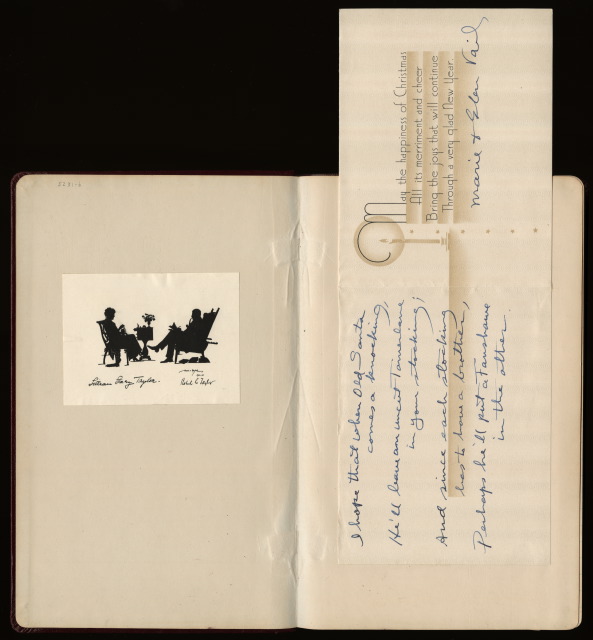 5231-6
Robt C Taylor
May the happiness of Christmas
All its merriment and cheer
Bring the joys that will continue
Through a very glad New Year.
Marie & Elan Vail,
I hope that when Old Santa
comes a knocking,
He'll leave an uncut Tamerlane
in your stocking;
And since each stocking
has to have a brother,
Perhaps he'll put a Fanshawe
in the other.